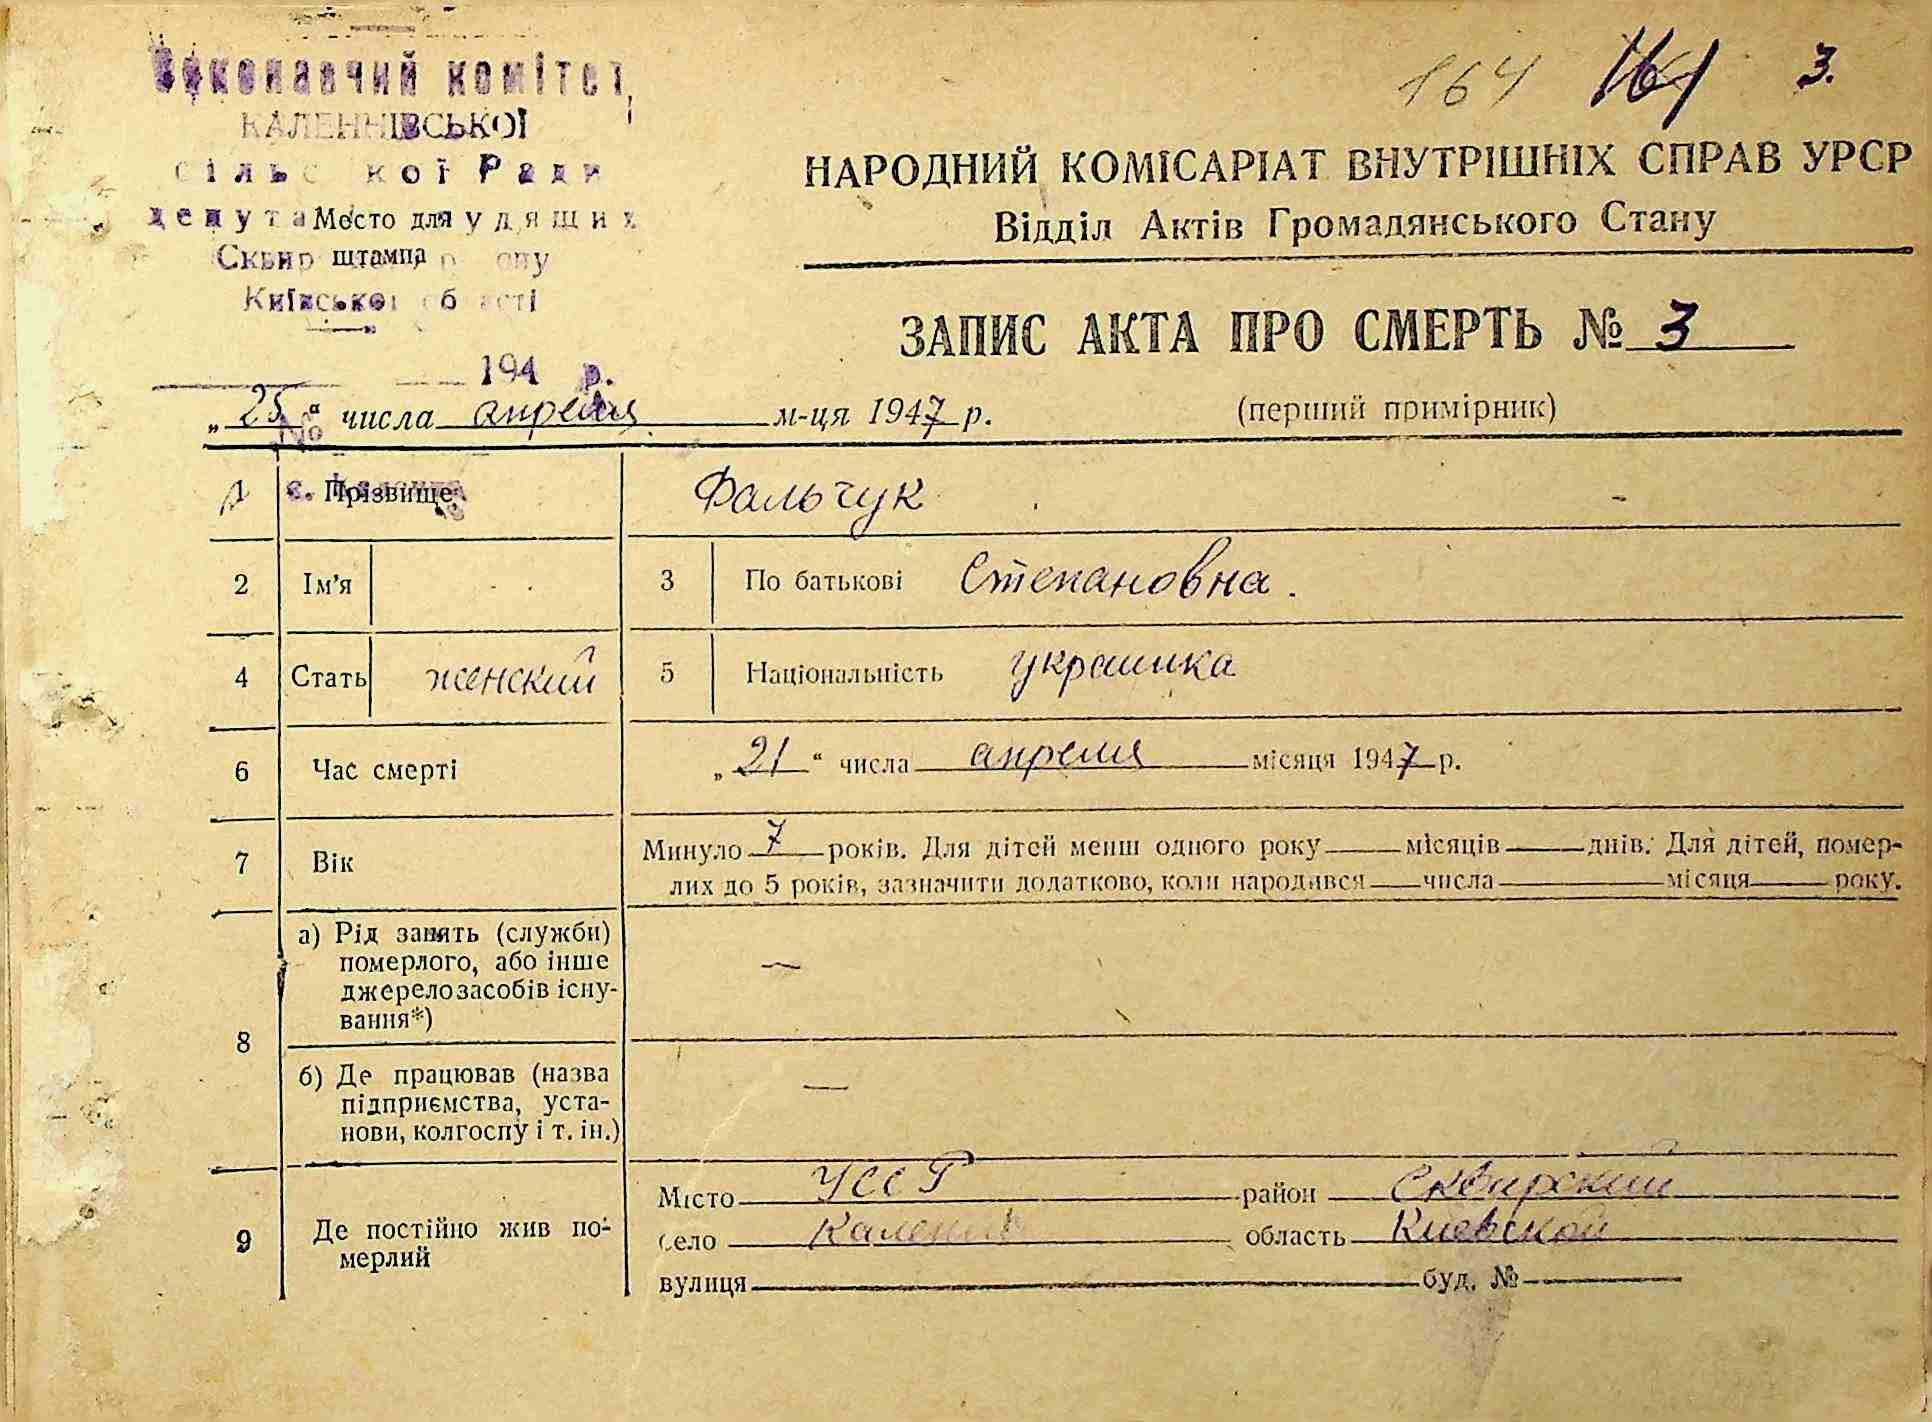 Виконавчий комітет
КАЛЕННІВСЬКОЇ
сільської Ради
депута Место для удящих
Сквир штампа ону
Київської області
194 р.
№
164 161 3.
НАРОДНИЙ КОМІСАРІАТ ВНУТРІШНІХ СПРАВ УРСР
Відділ Актів Громадянського Стану
ЗАПИС АКТА ПРО СМЕРТЬ № 3
„25“ числа апреля м-ця 1947 р.
(перший примірник)
1 Прізвище Фальчук
2 Ім’я 3 По батькові Степановна.
4 Стать женский 5 Національність украинка
6 Час смерті „21“ числа апреля місяця 1947 р.
7 Вік Минуло 7 років. Для дітей менш одного року місяців днів. Для дітей, помер-
лих до 5 років, зазначити додатково, коли народився числа місяця року.
8 а) Рід занять (служби)
померлого, або інше
джерело засобів існу-
вання*) —
б) Де працював (назва
підприємства, уста-
нови, колгоспу і т. ін.) —
9 Де постійно жив по-
мерлий
Місто УССР район Сквирский
село область Киевской
вулиця буд. №